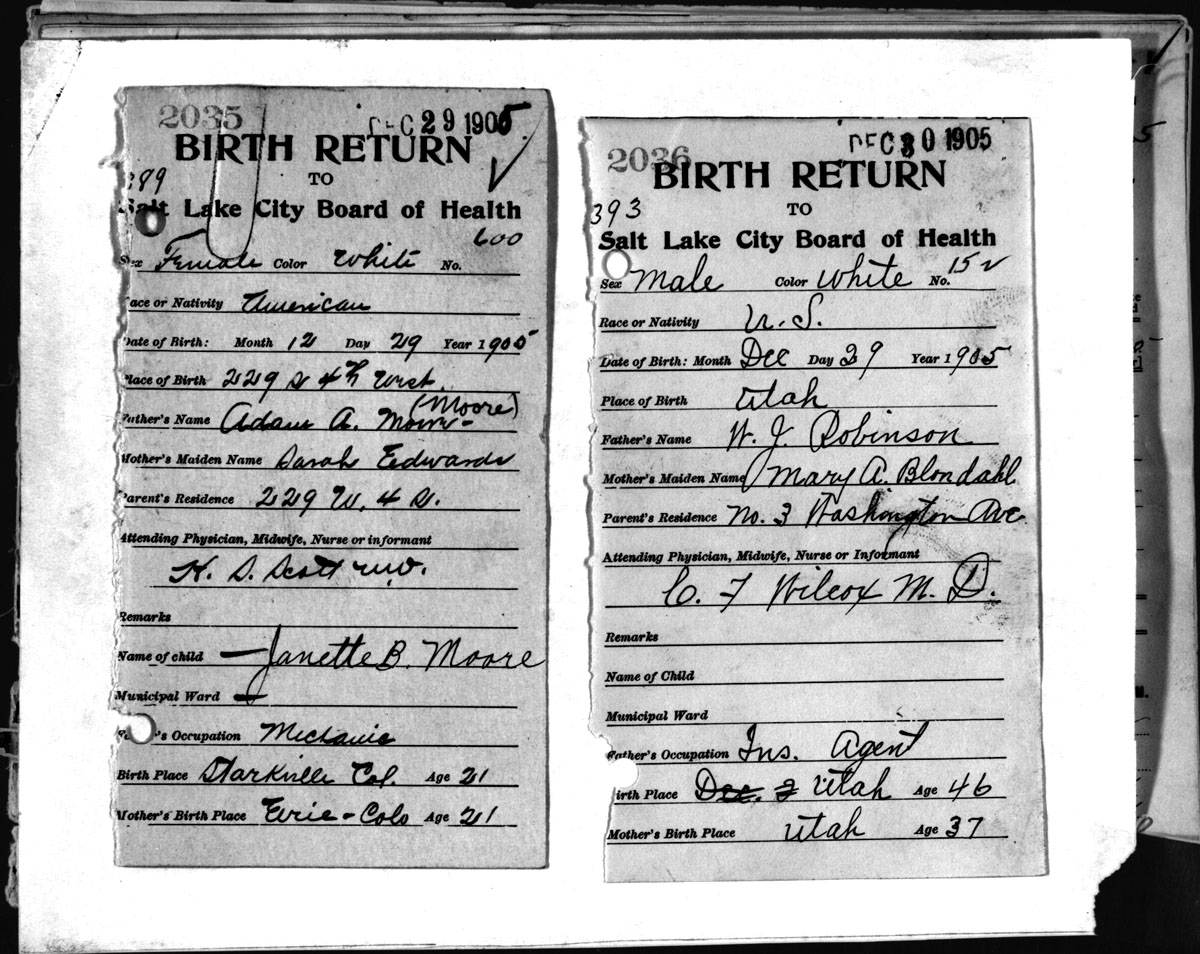 2035
DEC 29 1905
BIRTH RETURN
TO
389
Salt Lake City Board of Health
600
Sex Female Color White No.
Race or Nativity American
Date of Birth: Month 12 Day 29 Year 1905
Place of Birth 229 S 4th West.
(Moore)
Father's Name Adam A.
Mother's Maiden Name Sarah Edwards
Parent's Residence 229 W. 4 S.
Attending Physician, Midwife, Nurse or informant
H. S. Scott M.D.
Remarks
Name of child — Janette B. Moore
Municipal Ward —
Father's Occupation Mechanic
Birth Place Starkville Col. Age 21
Mother's Birth Place Erie - Colo Age 21
2036
DEC 30 1905
BIRTH RETURN
TO
393
Salt Lake City Board of Health
Sex Male Color White No. 15
Race or Nativity U. S.
Date of Birth: Month Dec Day 29 Year 1905
Place of Birth Utah
Father's Name W. J. Robinson
Mother's Maiden Name Mary A. Blondahl
Parent's Residence No. 3 Washington Ave
Attending Physician, Midwife, Nurse or Informant
C. F Wilcox M. D.
Remarks
Name of Child
Municipal Ward
Father's Occupation Ins. Agent
Birth Place Dec. 2 Utah Age 46
Mother's Birth Place Utah Age 37